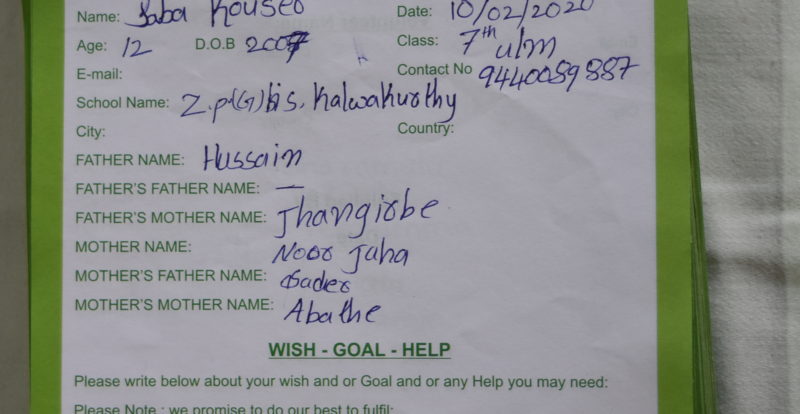 Name: Saba Kouser Date: 10/02/2020
Age: 12 D.O.B 2007 Class: 7th u/m
E-mail: Contact No 9440089887
School Name: Z.p(G)H.S. Kalwakurthy
City: Country:
FATHER NAME: Hussain
FATHER'S FATHER NAME: —
FATHER'S MOTHER NAME: Jhangirbe
MOTHER NAME: Noor Jaha
MOTHER'S FATHER NAME:
MOTHER'S MOTHER NAME: Abathe
WISH - GOAL - HELP
Please write below about your wish and or Goal and or any Help you may need:
Please Note : we promise to do our best to fulfil: